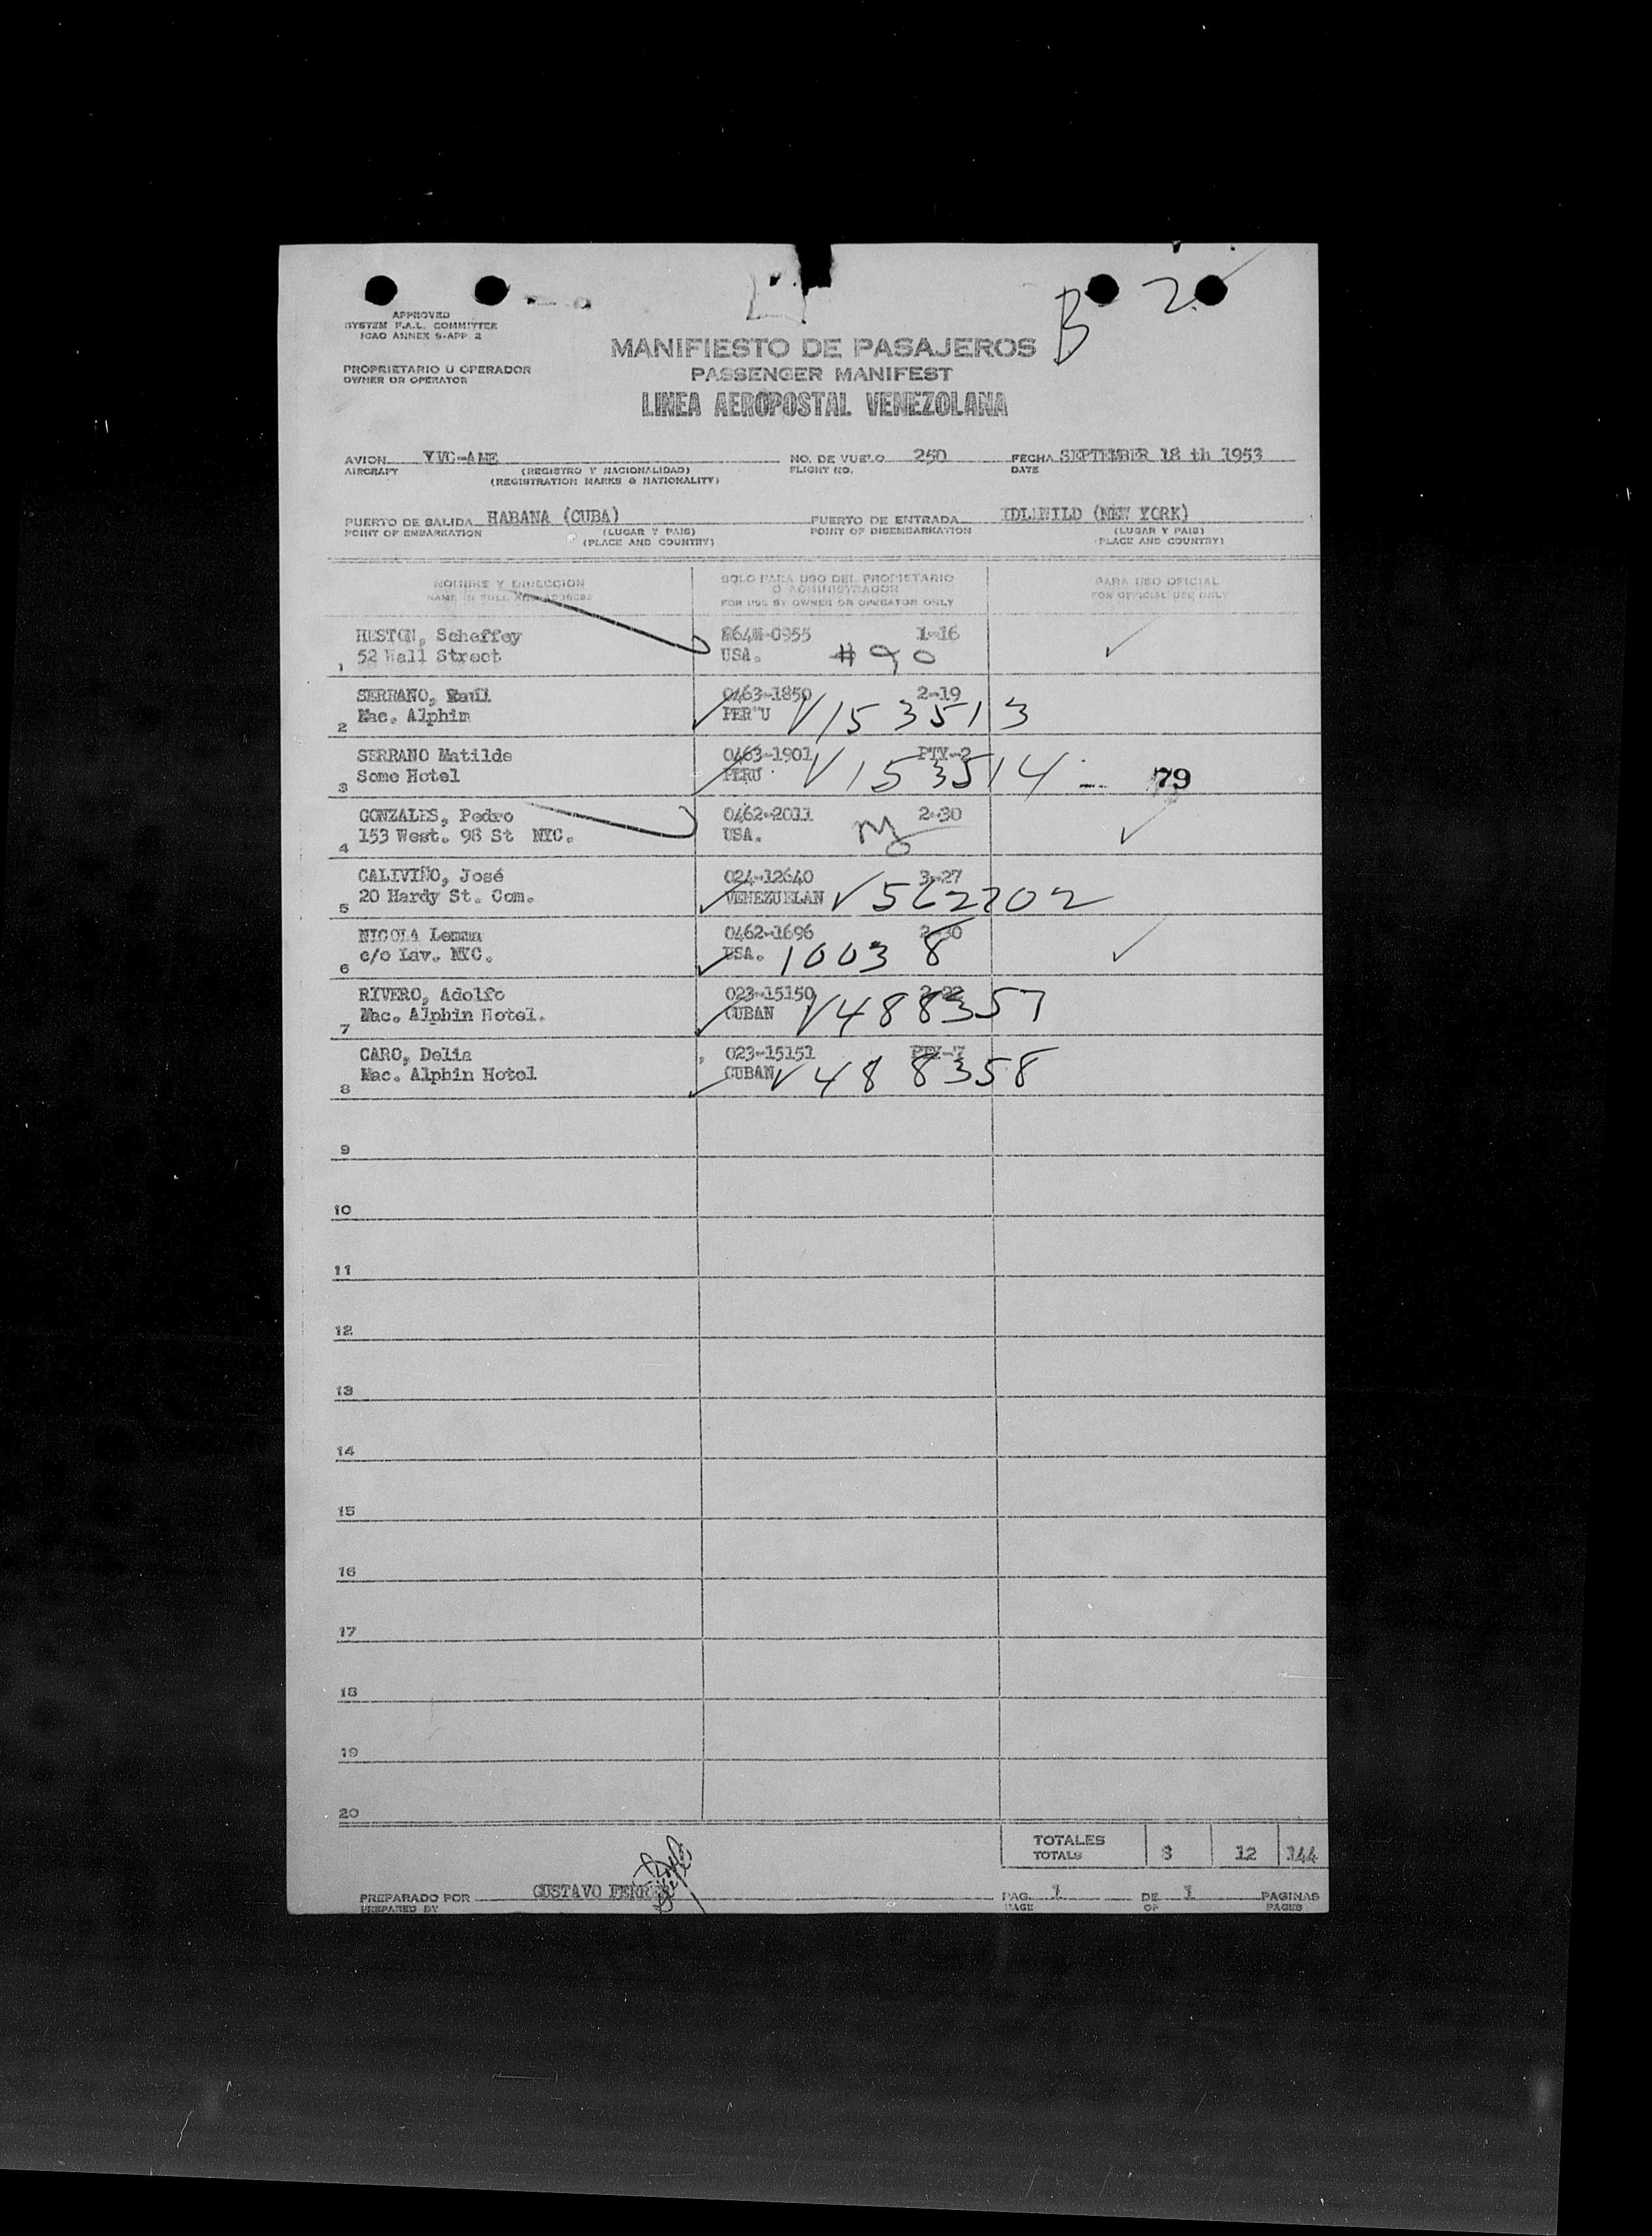 B 2
APPROVED
SYSTEM F.A.L. COMMITTEE
ICAO ANNEX 9-APP 2
MANIFIESTO DE PASAJEROS
PROPRIETARIO U OPERADOR
OWNER OR OPERATOR
PASSENGER MANIFEST
LINEA AEROPOSTAL VENEZOLANA
AVION YVC-AME NO. DE VUELO 250 FECHA SEPTEMBER 18 th 1953
AIRCRAFT (REGISTRO Y NACIONALIDAD) FLIGHT NO. DATE
(REGISTRATION MARKS & NATIONALITY)
PUERTO DE SALIDA HABANA (CUBA) PUERTO DE ENTRADA IDLEWILD (NEW YORK)
POINT OF EMBARKATION (LUGAR Y PAIS) POINT OF DISEMBARKATION (LUGAR Y PAIS)
(PLACE AND COUNTRY) (PLACE AND COUNTRY)
NOMBRE Y DIRECCION SOLO PARA USO DEL PROPIETARIO PARA USO OFICIAL
O ADMINISTRADOR
NAME IN FULL AND ADDRESS FOR USE BY OWNER OR OPERATOR ONLY FOR OFFICIAL USE ONLY
HUSTON, Scheffey 1-16
1 52 Wall Street USA. #90
SERRANO, Raul 0463-1850 2-19
2 Mac. Alphin PER"U V153513
SERRANO Matilde 0463-1901 PTY-2
3 Same Hotel PERU V153514 79
GONZALES, Pedro 0462-2011 2-30
4 153 West. 98 St NYC. USA.
CALIVIÑO, José 024-12640 3-27
5 20 Hardy St. Com. VENEZUELAN V562202
NICOLA Lemma 0462-1696 2-30
6 c/o Lav. NYC. USA. 10038
RIVERO, Adolfo 023-15150 2-22
7 Mac. Alphin Hotel. CUBAN V488357
CARO, Delia 023-15151 PTY-7
8 Mac. Alphin Hotel CUBAN V488358
9
10
11
12
13
14
15
16
17
18
19
20
TOTALES
TOTALS 8 12 144
PREPARADO POR GUSTAVO FERRER PAG. 1 DE 1 PAGINAS
PREPARED BY PAGE OF PAGES